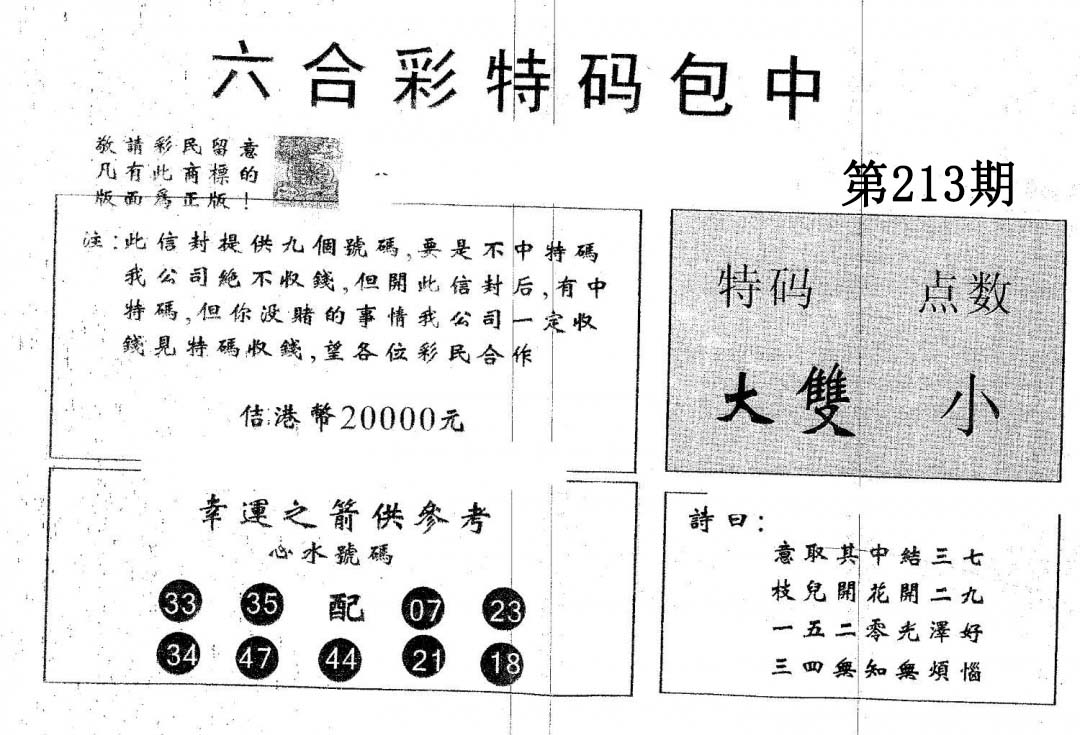 六合彩特码包中
敬請彩民留意
凡有此商標的
版面爲正版！
第213期
注：此信封提供九個號碼,要是不中特碼
我公司絕不收錢,但開此信封后,有中
特碼,但你没賭的事情我公司一定收
錢見特碼收錢,望各位彩民合作
佶港幣20000元
特码 点数
大雙 小
幸運之箭供參考
心水號碼
33 35 配 07 23
34 47 44 21 18
詩曰：
意取其中結三七
枝兒開花開二九
一五二零光澤好
三四無知無煩惱